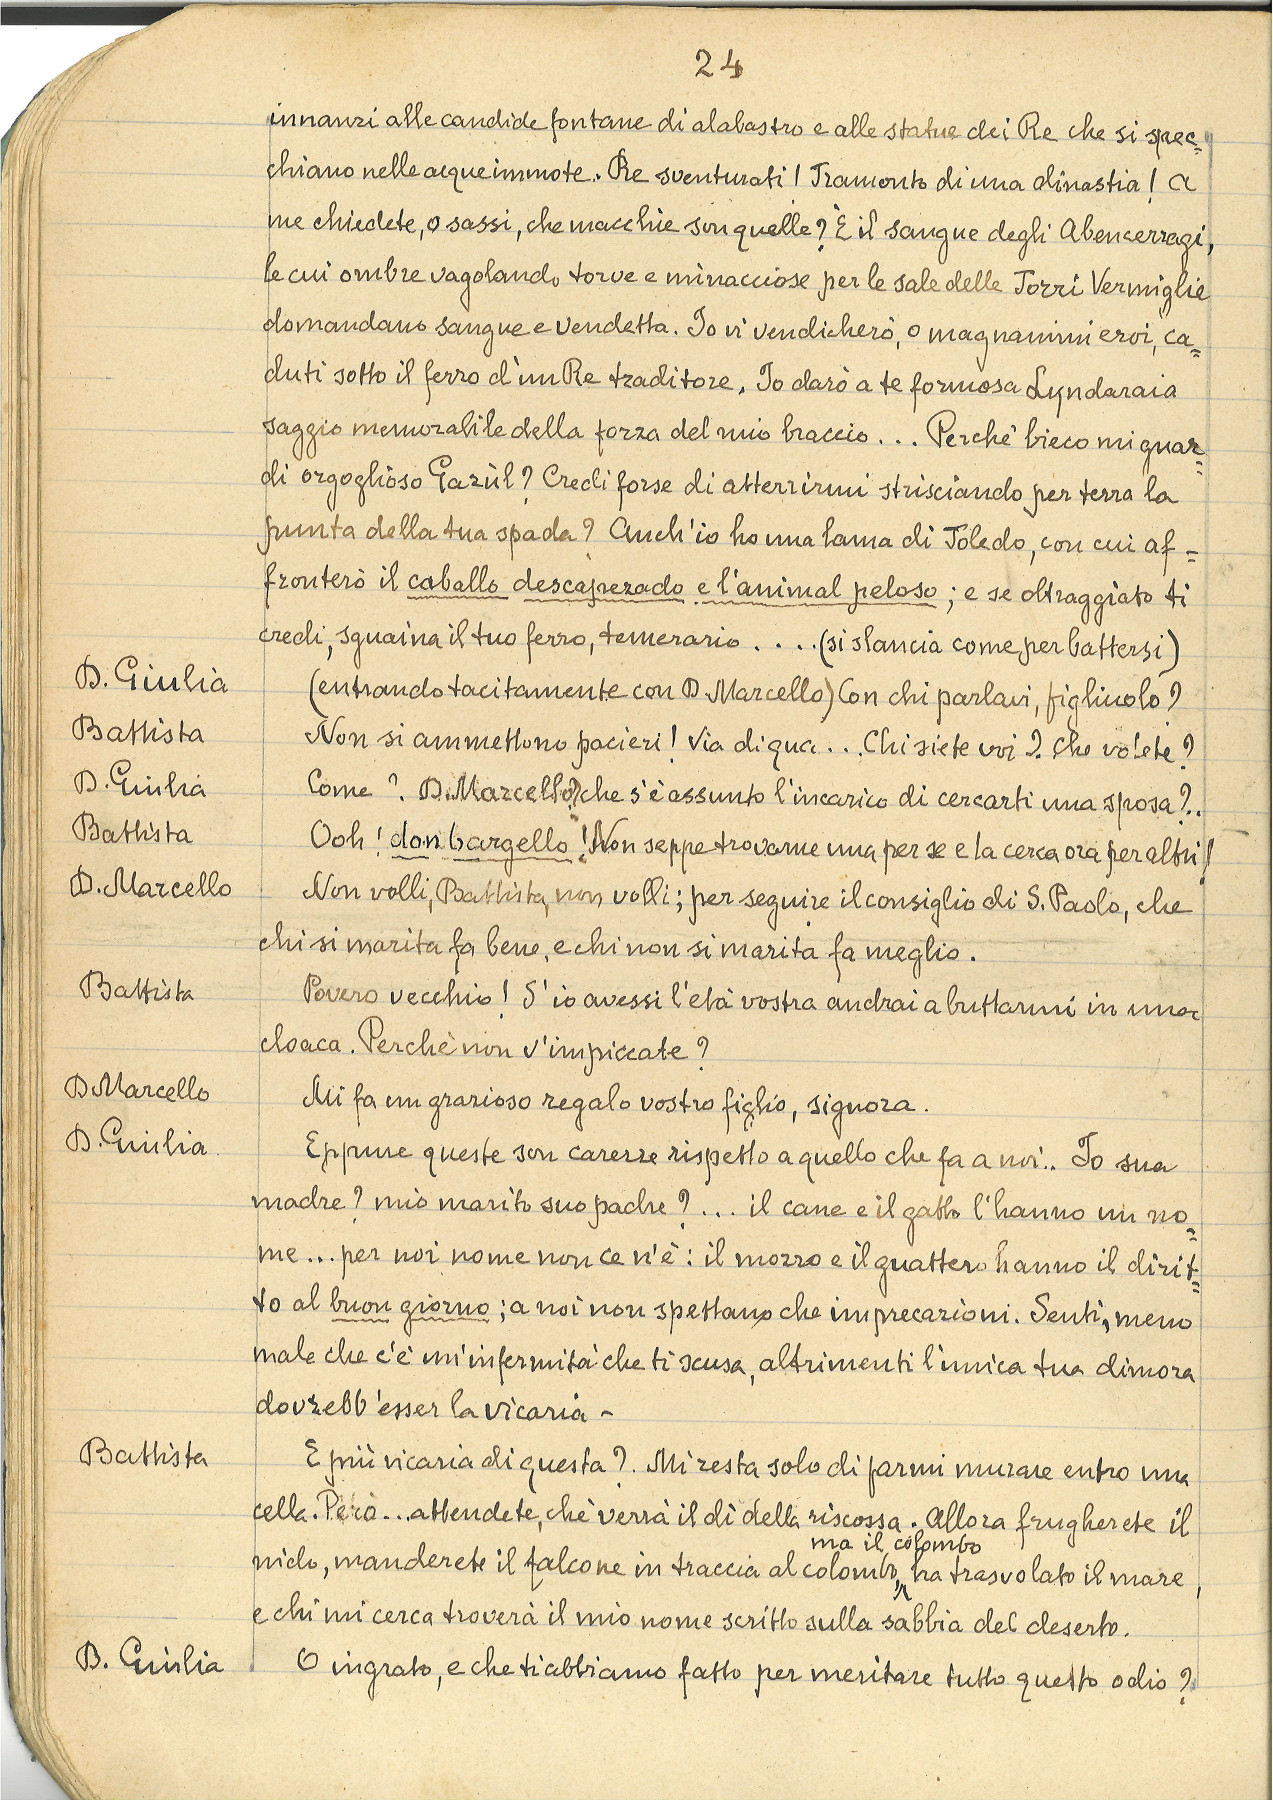 24
innanzi alle candide fontane di alabastro e alle statue dei Re che si spec=
chiano nelle acque immote. Re sventurati! Tramonto di una dinastia! A
me chiedete, o sassi, che macchie son quelle? È il sangue degli Abencerragi,
le cui ombre vagolando torve e minacciose per le sale delle Torri Vermiglie
domandano sangue e vendetta. Io vi vendicherò, o magnanimi eroi, ca=
duti sotto il ferro d'un Re traditore. Io darò a te formosa Lyndaraia
saggio memorabile della forza del mio braccio... Perchè bieco mi guar=
di orgoglioso Gazùl? Credi forse di atterrirmi strisciando per terra la
punta della tua spada? Anch'io ho una lama di Toledo, con cui af=
fronterò il caballo descapezado e l'animal peloso; e se oltraggiato ti
credi, sguaina il tuo ferro, temerario.... (si slancia come per battersi)
D. Giulia (entrando tacitamente con D. Marcello) Con chi parlavi, figliuolo?
Battista Non si ammettono pacieri! Via di qua... Chi siete voi? Che volete?
D. Giulia Come? D. Marcello? che s'è assunto l'incarico di cercarti una sposa?..
Battista Ooh! don bargello! Non seppe trovarne una per se e la cerca ora per altri!
D. Marcello Non volli, Battista, non volli; per seguire il consiglio di S. Paolo, che
chi si marita fa bene, e chi non si marita fa meglio.
Battista Povero vecchio! S'io avessi l'età vostra andrai a buttarmi in una
cloaca. Perchè non v'impiccate?
D Marcello Mi fa un grazioso regalo vostro figlio, signora.
D. Giulia Eppure queste son carezze rispetto a quello che fa a noi.. Io sua
madre? mio marito suo padre?... il cane e il gatto l'hanno un no=
me... per noi nome non ce n'è: il mozzo e il guattero hanno il dirit=
to al buon giorno; a noi non spettano che imprecazioni. Senti, meno
male che c'è un'infermità che ti scusa, altrimenti l'unica tua dimora
dovrebb'esser la vicaria -
Battista E più vicaria di questa? Mi resta solo di farmi murare entro una
cella. Però... attendete, chè verrà il dì della riscossa. Allora frugherete il
ma il colombo
nido, manderete il falcone in traccia al colombo, ha trasvolato il mare,
e chi mi cerca troverà il mio nome scritto sulla sabbia del deserto.
D. Giulia O ingrato, e che ti abbiamo fatto per meritare tutto questo odio?